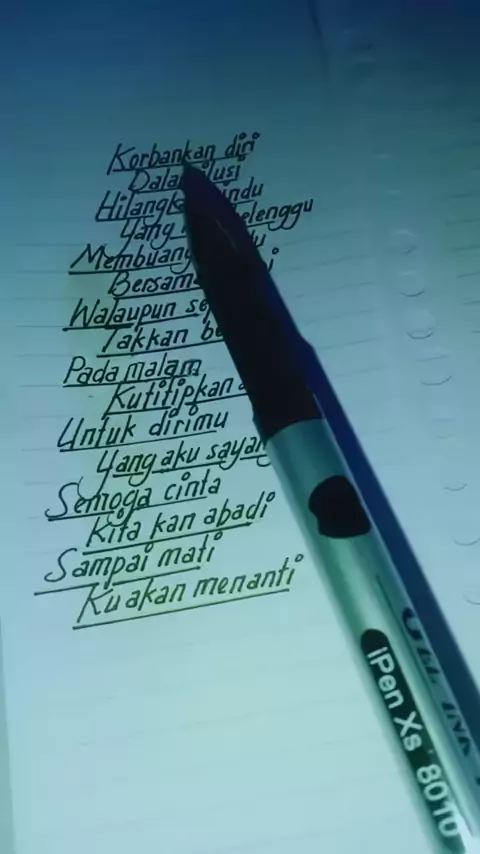 Korbankan diri
Dalam ilusi
Hilangkan rindu
Yang elenggu
Membuang
Bersama
Walaupun se
Takkan be
Pada malam
Kutitipkan
Untuk dirimu
Yang aku sayang
Semoga cinta
Kita kan abadi
Sampai mati
Ku akan menanti
GEL INK
iPen Xs 8010